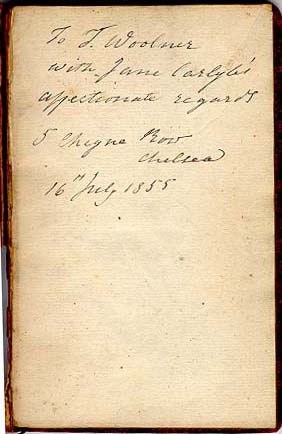 To T. Woolner
with Jane Carlyle's
affectionate regards
5 Cheyne Row
Chelsea
16th July 1855